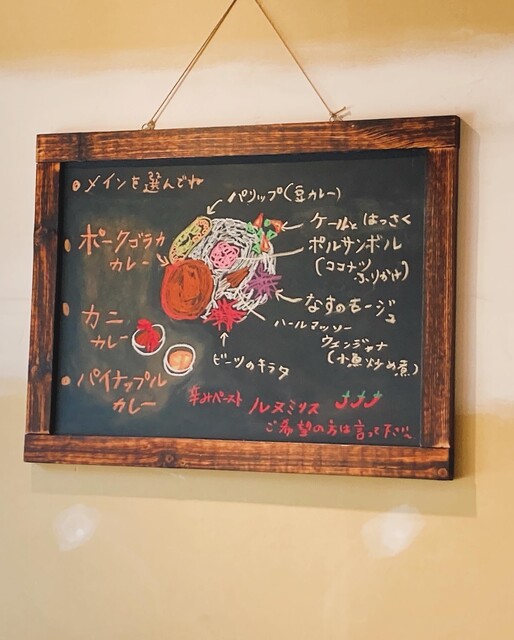 メインを選んでね
パリップ(豆カレー)
ケールと はっさく
ポークゴラカ
カレー
ポルサンボル
(ココナツ
ふりかけ)
なすのモージュ
カニ
カレー
ハールマッソー
ウェンジャナ
(小魚炒め煮)
ビーツのキラタ
パイナップル
カレー
辛みペースト ルヌミリス
ご希望の方は言って下さい